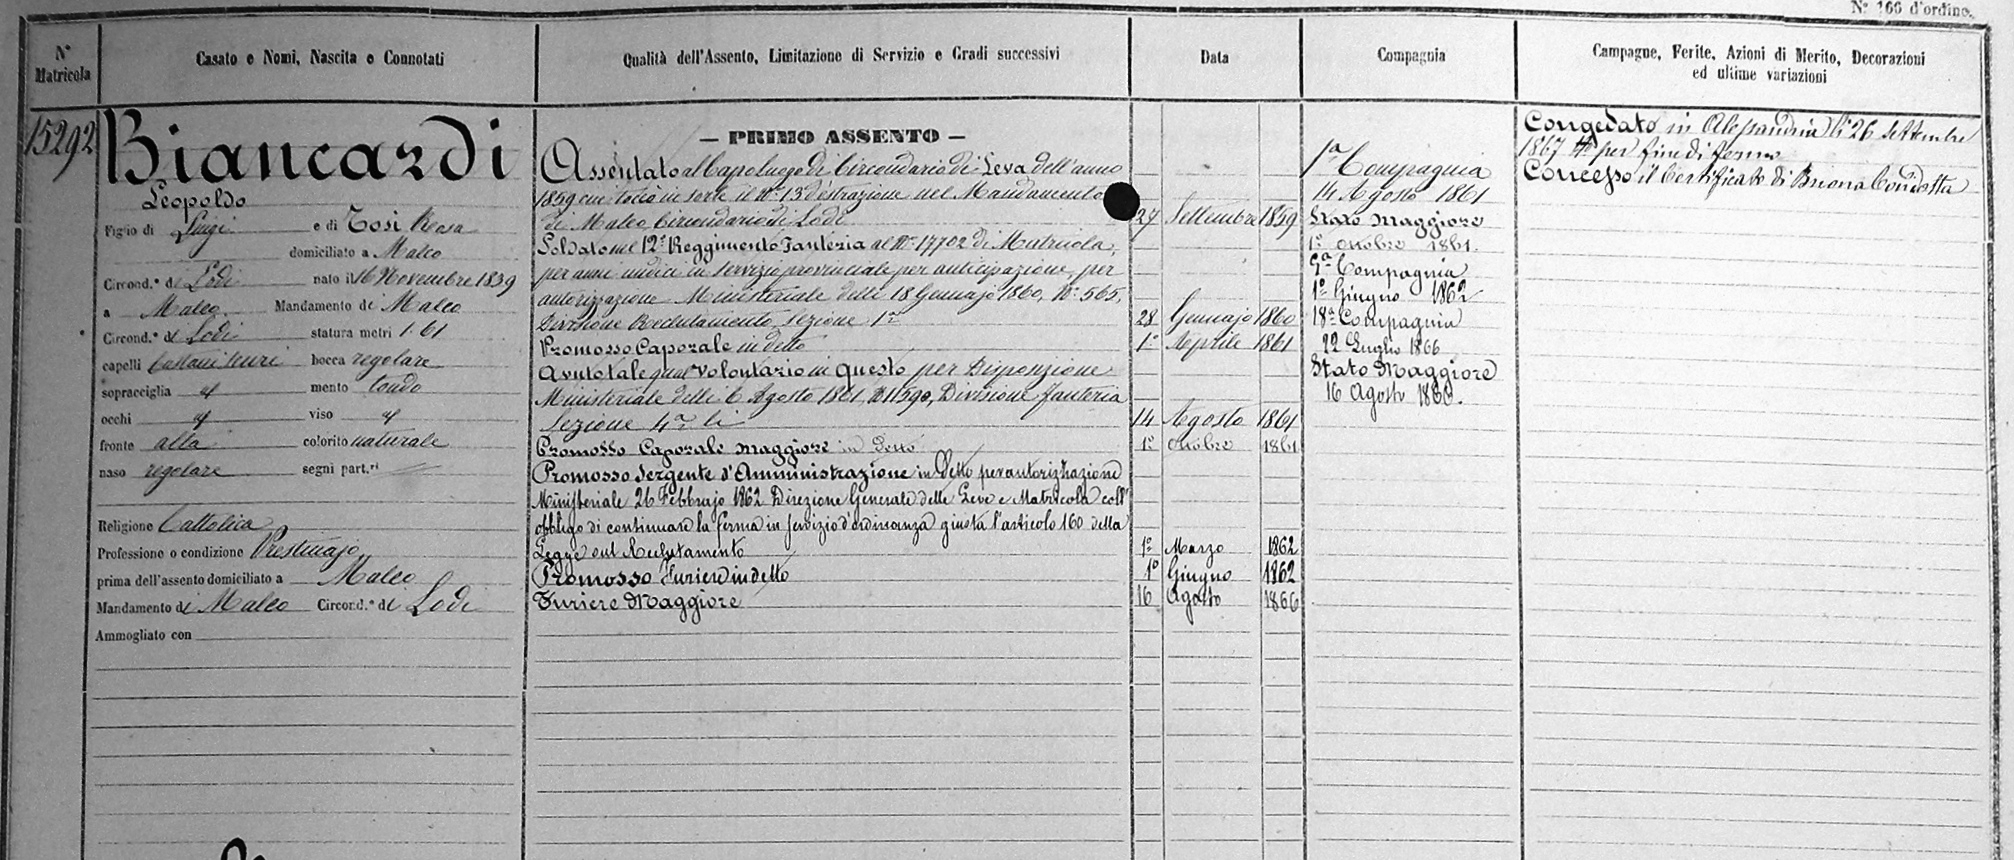 N° 166 d'ordine.
N° Matricola
Casato e Nomi, Nascita e Connotati
Qualità dell'Assento, Limitazione di Servizio e Gradi successivi
Data
Compagnia
Campagne, Ferite, Azioni di Merito, Decorazioni
ed ultime variazioni
15292
Biancardi
Leopoldo
Figlio di Luigi e di Tosi Rosa
domiciliato a Maleo
Circond.° di Lodi nato il 16 Novembre 1839
a Maleo Mandamento di Maleo
Circond.° di Lodi statura metri 1. 61
capelli Castani scuri bocca regolare
sopracciglia id mento tondo
occhi id viso id
fronte alta colorito naturale
naso regolare segni part.ri
Religione Cattolica
Professione o condizione Prestinajo
prima dell'assento domiciliato a Maleo
Mandamento di Maleo Circond.° di Lodi
Ammogliato con
— PRIMO ASSENTO —
Assentato al Capoluogo di Circondario di Leva dell'anno
1859 cui toccò in sorte il N° 13 d'estrazione nel Mandamento
di Maleo Circondario di Lodi 27 Settembre 1859
Soldato nel 12° Reggimento Fanteria al N° 17702 di Matricola,
per anni undici in servizio provinciale per anticipazione, per
autorizzazione Ministeriale delli 18 Gennajo 1860, N° 565,
Divisione Reclutamento Sezione 1a 28 Gennajo 1860
Promosso Caporale in detto 1° Aprile 1861
Avuto tale qual Volontario in Questo per Disposizione
Ministeriale delli 6 Agosto 1861, N° 11590, Divisione Fanteria
Sezione 4a li 14 Agosto 1861
Promosso Caporale Maggiore in detto 1° Ottobre 1861
Promosso Sergente d'Amministrazione in detto per autorizzazione
Ministeriale 26 Febbrajo 1862 Direzione Generale delle Leve e Matricola coll'
obbligo di continuare la ferma in servizio d'ordinanza giusta l'articolo 160 della
Legge sul Reclutamento 1° Marzo 1862
Promosso Furiere in detto 1° Giugno 1862
Furiere Maggiore 16 Agosto 1866
1a Compagnia
14 Agosto 1861
Stato Maggiore
1° Ottobre 1861.
9a Compagnia
1° Giugno 1862
18a Compagnia
22 Luglio 1866
Stato Maggiore
16 Agosto 1866.
Congedato in Alessandria li 26 Settembre
1867 per fine di ferma
Concesso il Certificato di Buona Condotta